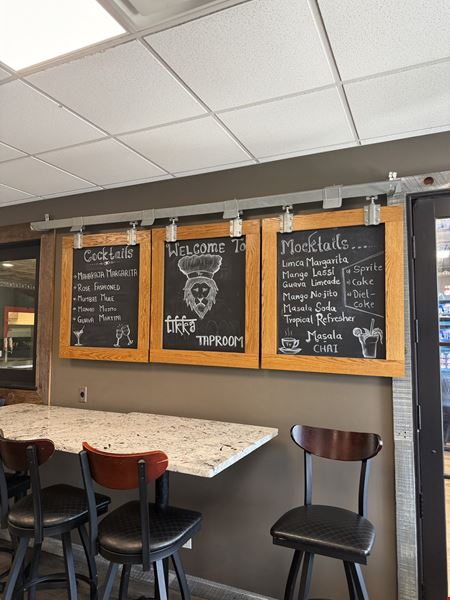 Cocktails
MAHARAJA MARGARITA
ROSE FASHIONED
MUMBAI MULE
MANGO MOJITO
GUAVA MARTINI
WELCOME TO
tikka
TAPROOM
Mocktails....
Limca Margarita
Mango Lassi
Guava Limeade
Mango Nojito
Masala Soda
Tropical Refresher
Masala
CHAI
Sprite
Coke
Diet-
coke